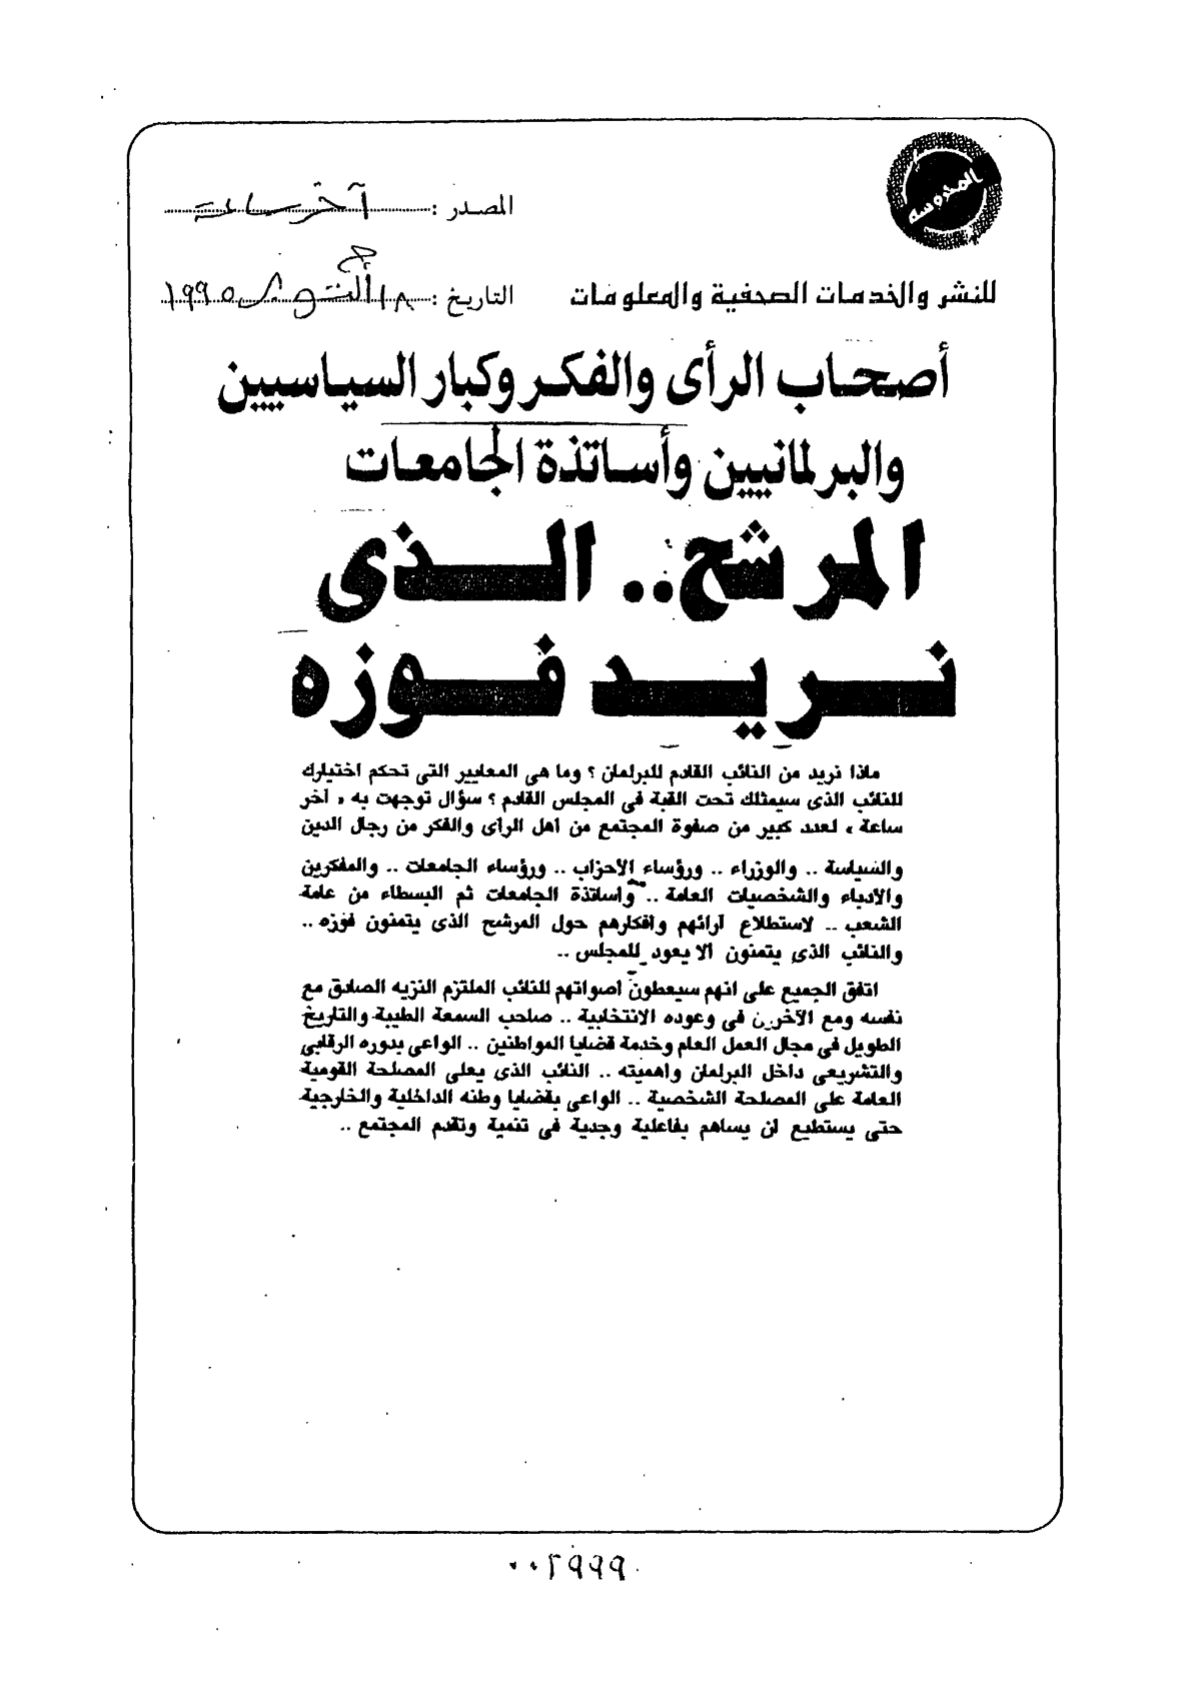 المحروسة
المصدر : آخر ساعة
للنشر والخدمات الصحفية والمعلومات
التاريخ : ١٨ أكتوبر ١٩٩٥
أصحاب الرأى والفكر وكبار السياسيين
والبرلمانيين وأساتذة الجامعات
المرشح.. الذى
نريد فوزه
ماذا نريد من النائب القادم للبرلمان ؟ وما هى المعايير التى تحكم اختيارك
للنائب الذى سيمثلك تحت القبة فى المجلس القادم ؟ سؤال توجهت به « آخر
ساعة » لعدد كبير من صفوة المجتمع من أهل الرأى والفكر من رجال الدين
والسياسة .. والوزراء .. ورؤساء الأحزاب .. ورؤساء الجامعات .. والمفكرين
والأدباء والشخصيات العامة .. وأساتذة الجامعات ثم البسطاء من عامة
الشعب .. لاستطلاع آرائهم وأفكارهم حول المرشح الذى يتمنون فوزه ..
والنائب الذى يتمنون ألا يعود للمجلس ..
اتفق الجميع على أنهم سيعطون أصواتهم للنائب الملتزم النزيه الصادق مع
نفسه ومع الآخرين فى وعوده الانتخابية .. صاحب السمعة الطيبة والتاريخ
الطويل فى مجال العمل العام وخدمة قضايا المواطنين .. الواعى بدوره الرقابى
والتشريعى داخل البرلمان وأهميته .. النائب الذى يعلى المصلحة القومية
العامة على المصلحة الشخصية .. الواعى بقضايا وطنه الداخلية والخارجية
حتى يستطيع أن يساهم بفاعلية وجدية فى تنمية وتقدم المجتمع ..
٠٠٢٩٩٩